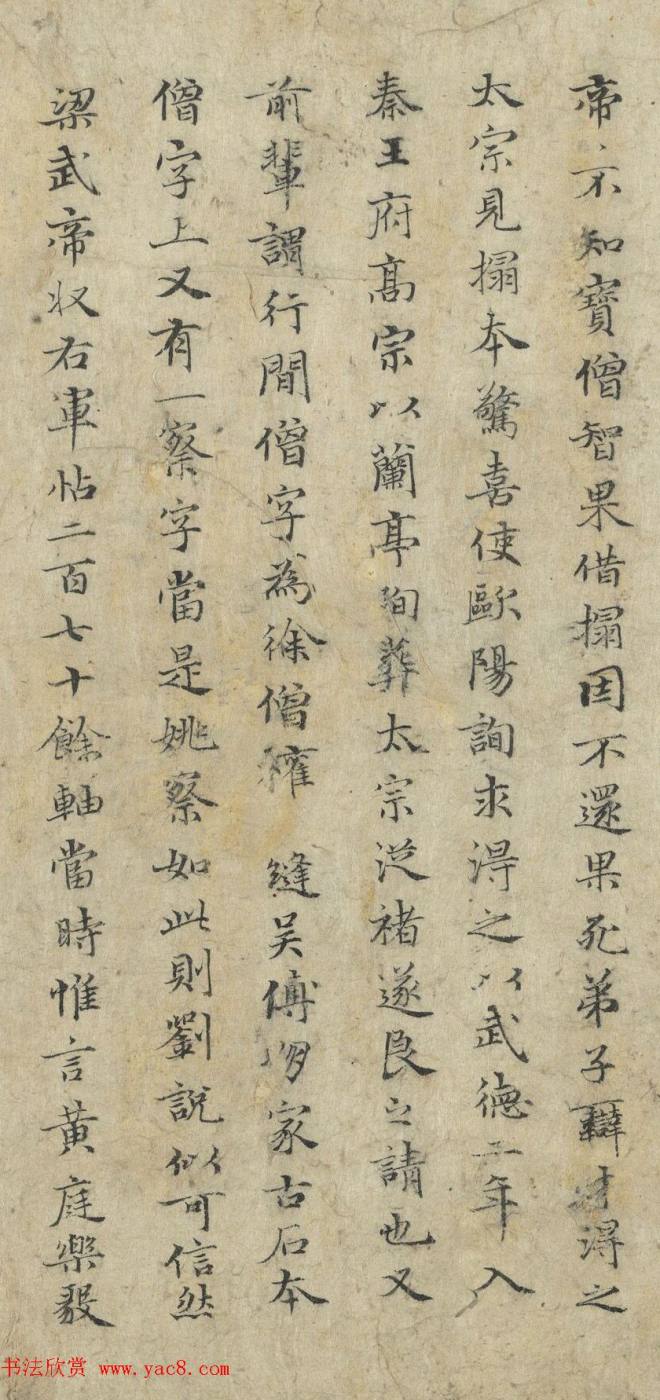 帝亦不知寶僧智果借搨因不還果死弟子辯才得之
太宗見搨本驚喜使歐陽詢求得之以武德二年入
秦王府髙宗以蘭亭殉葬太宗從褚遂良之請也又
前輩謂行間僧字為徐僧權縫吴傅朋家古石本
僧字上又有一察字當是姚察如此則劉說似可信然
梁武帝収右軍帖二百七十餘軸當時惟言黄庭樂毅
书法欣赏 www.yac8.com